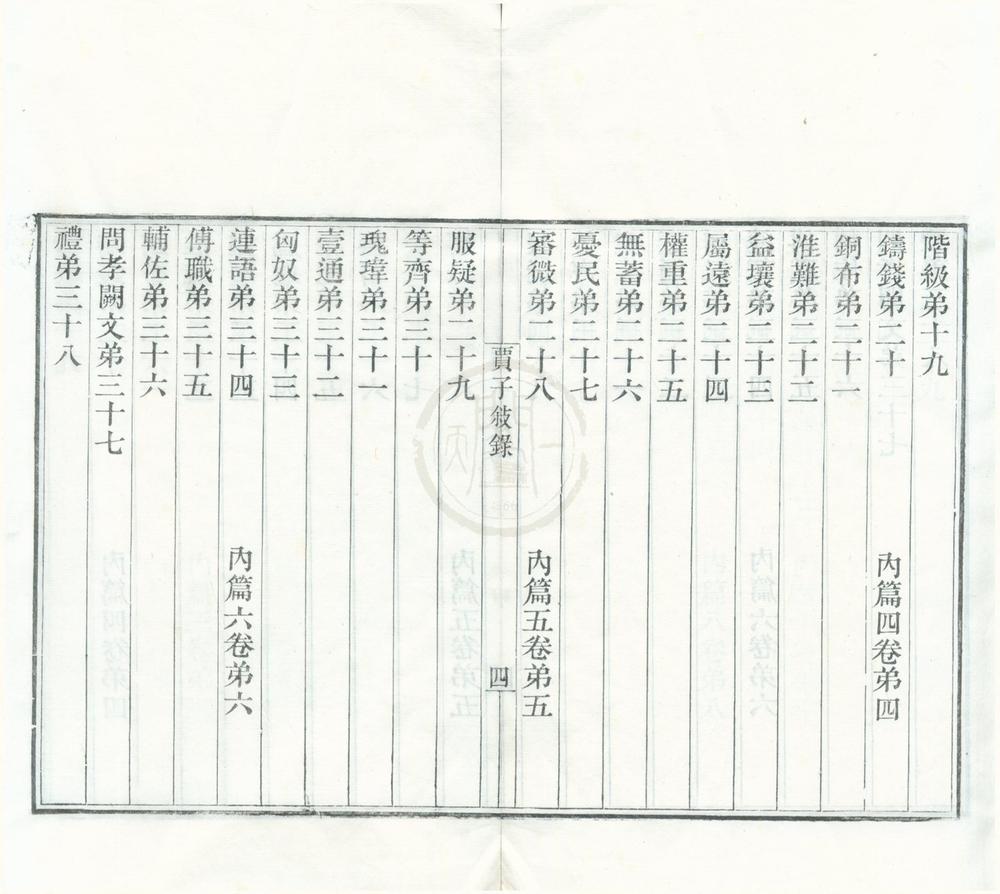 階級弟十九
鑄錢弟二十　內篇四卷弟四
銅布弟二十一
淮難弟二十二
益壤弟二十三
屬遠弟二十四
權重弟二十五
無蓄弟二十六
憂民弟二十七
審微弟二十八　內篇五卷弟五
賈子敍錄　四
服疑弟二十九
等齊弟三十
瑰瑋弟三十一
壹通弟三十二
匈奴弟三十三
連語弟三十四　內篇六卷弟六
傅職弟三十五
輔佐弟三十六
問孝闕文弟三十七
禮弟三十八